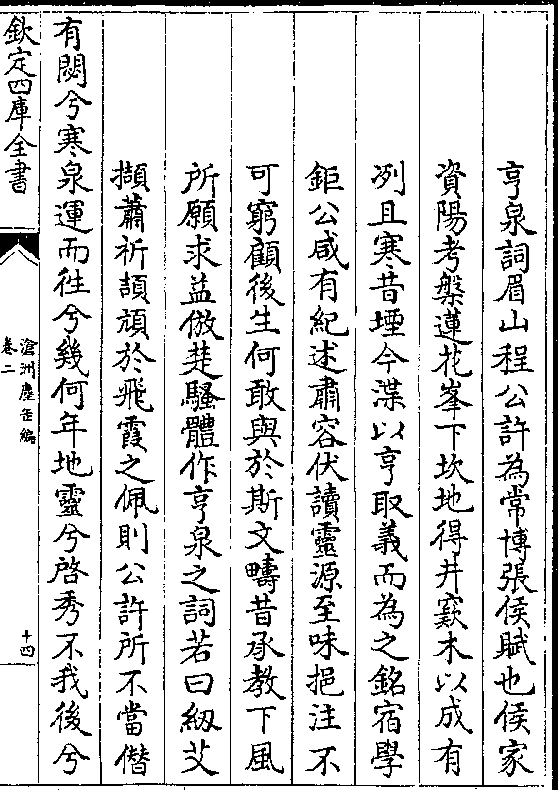 亨泉詞眉山程公許為常博張侯賦也侯家
資陽考槃蓮花峯下坎地得井窾木以成有
冽且寒昔堙今渫以亨取義而為之銘宿學
鉅公咸有紀述肅容伏讀靈源至味挹注不
可窮顧後生何敢與於斯文疇昔承教下風
所願求益倣楚騷體作亨泉之詞若曰紉艾
擷蕭祈頡頏於飛霞之佩則公許所不當僣
有閟兮寒泉運而徃兮幾何年地靈兮啓秀不我後兮
欽定四庫全書
滄洲塵缶編
卷二
十四